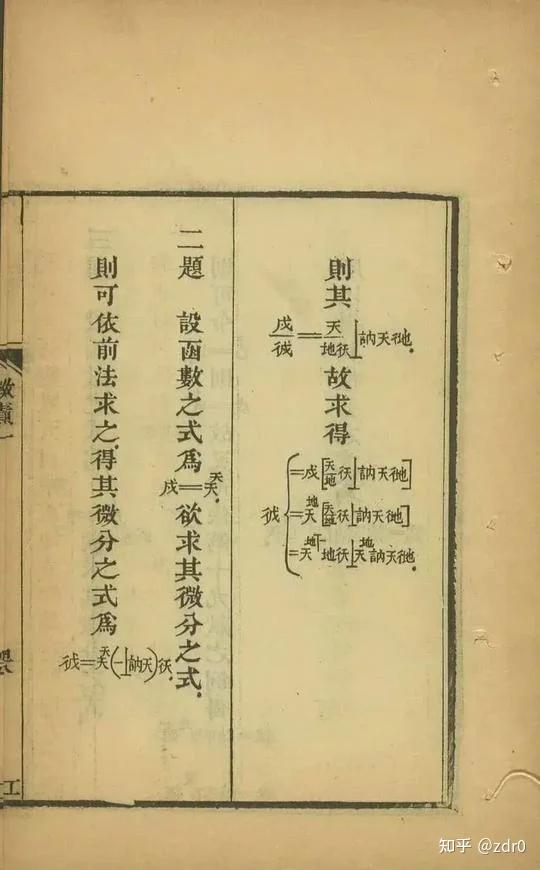 則其
戌/彳戌=天/地彳天⊥訥天彳地.
故求得
彳戌
=戌[天/地彳天⊥訥天彳地]
=天地[天/地彳天⊥訥天彳地]
=天地丅一地彳天⊥天地訥天彳地.
二題　設函數之式爲戌=天天,欲求其微分之式.
則可依前法求之,得其微分之式爲彳戌=天天(一⊥訥天)彳天.
微積一
知乎 @zdr0